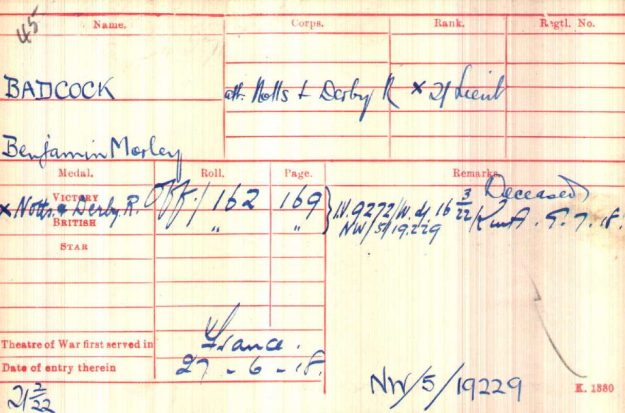 45
Name. Corps. Rank. Regtl. No.
BADCOCK att. Notts & Derby R × 2/Lieut
Benjamin Morley
Medal. Roll. Page. Remarks
VICTORY Off/162 169 } I.V. 9272/W. d/. 16 3/22 Deceased
× Notts. & Derby. R.
BRITISH " " NW/5/19229 K in A. 9.7.18.
STAR
Theatre of War first served in France.
Date of entry therein 27-6-18.
2 2/22 NW/5/19229 K. 1380